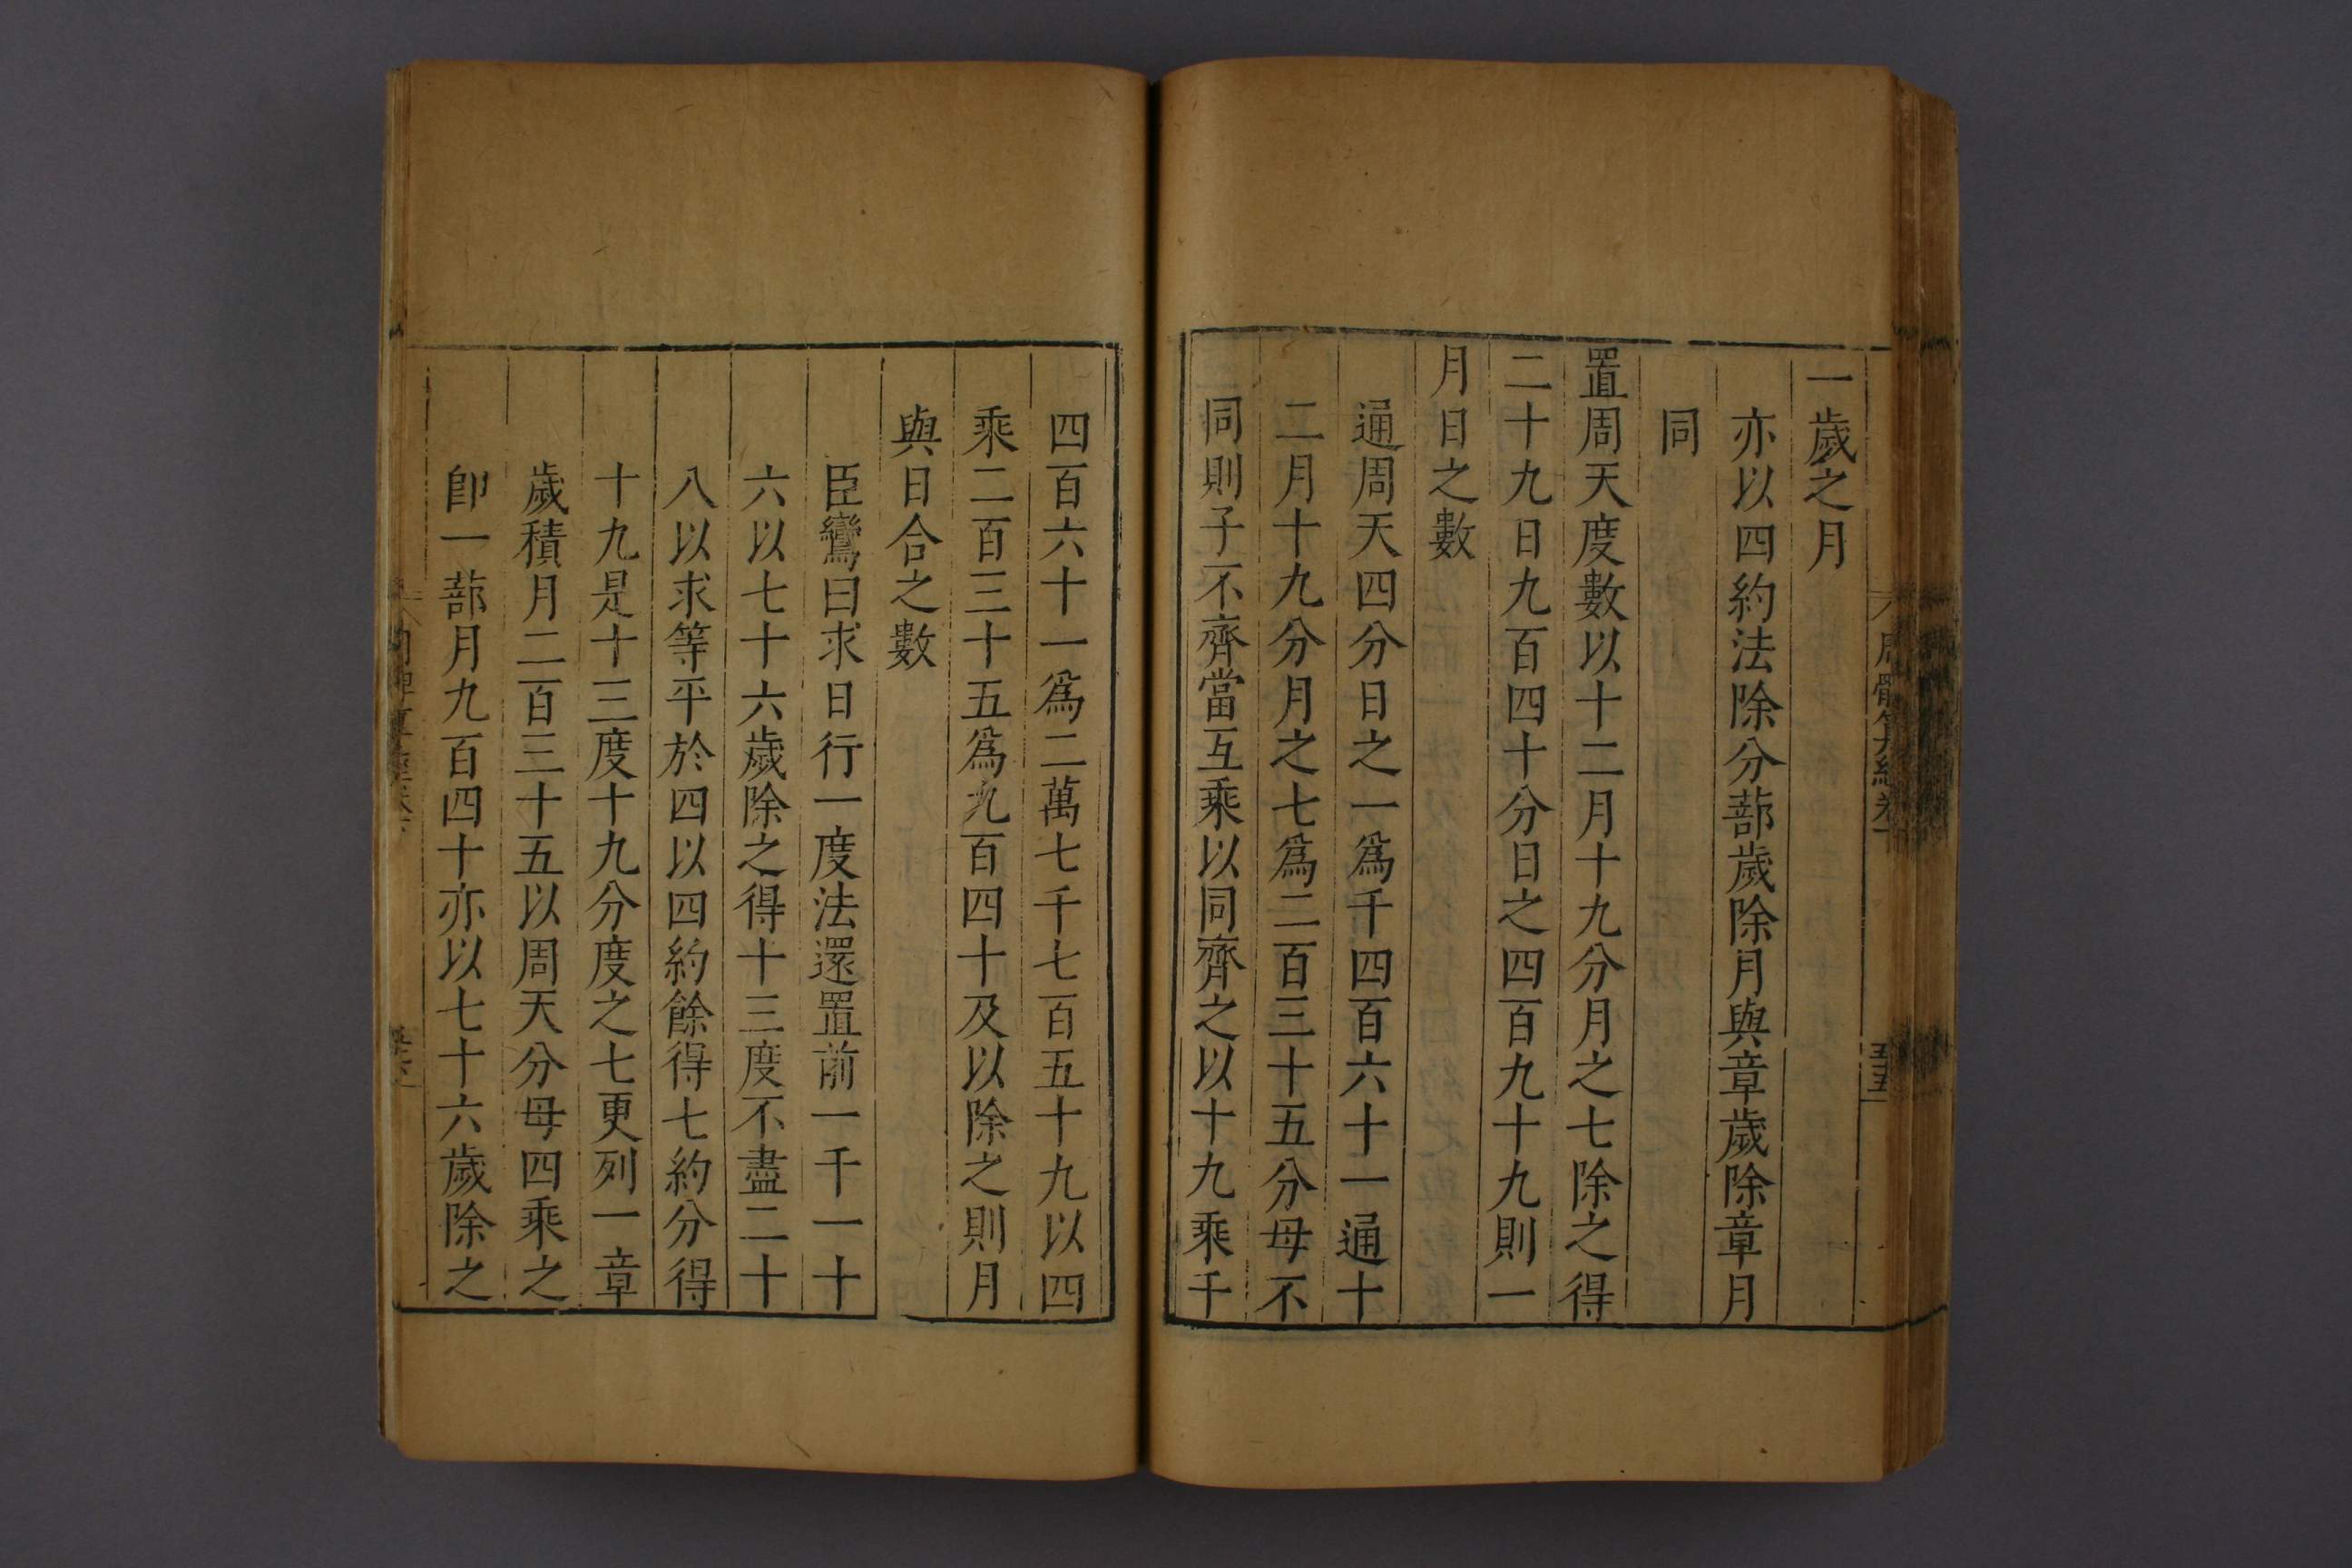 一歲之月
亦以四約法除分蔀歲除月與章歲除章月
同
置周天度數以十二月十九分月之七除之得
二十九日九百四十分日之四百九十九則一
月日之數
通周天四分日之一爲千四百六十一通十
二月十九分月之七爲二百三十五分母不
同則子不齊當互乘以同齊之以十九乘千
四百六十一爲二萬七千七百五十九以四
乘二百三十五爲九百四十及以除之則月
與日合之數
臣鸞曰求日行一度法還置前一千一十
六以七十六歲除之得十三度不盡二十
八以求等平於四以四約餘得七約分得
十九是十三度十九分度之七更列一章
歲積月二百三十五以周天分母四乘之
卽一蔀月九百四十亦以七十六歲除之